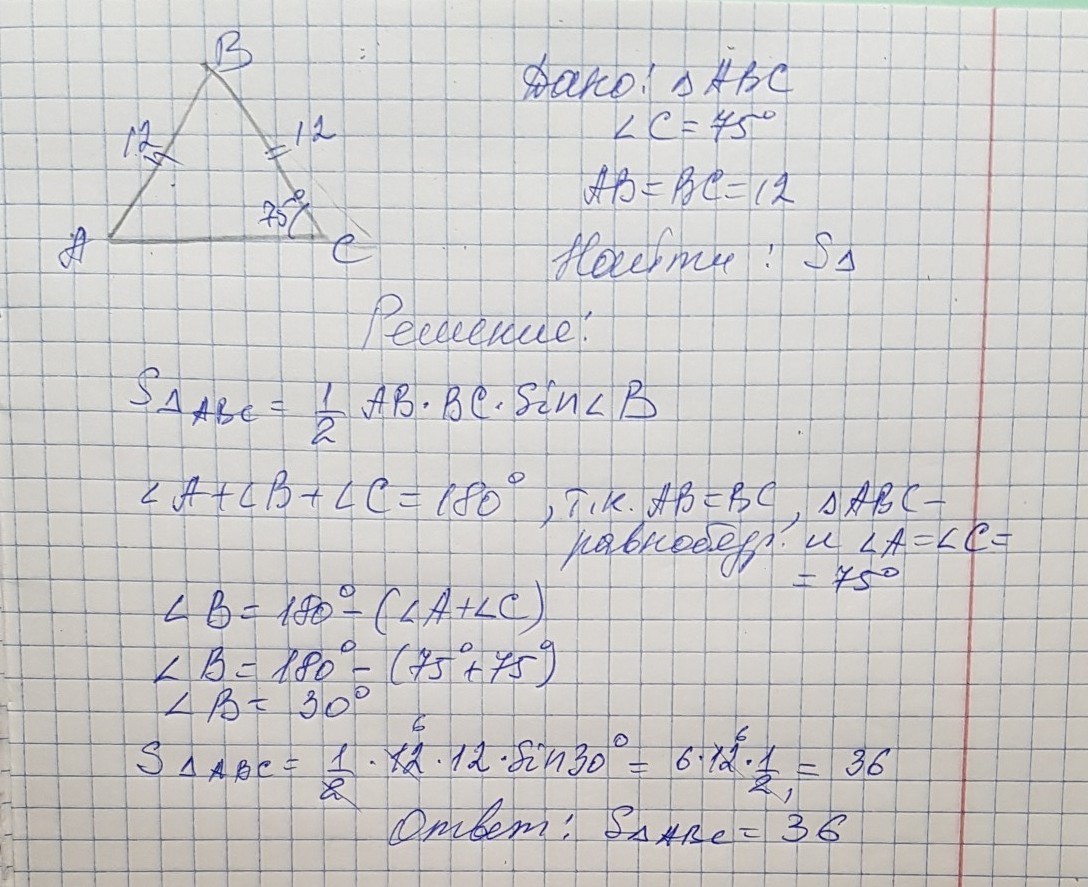 B
12
12
75°
A
C
Дано: △ABC
∠C = 75°
AB = BC = 12
Найти : S△
Решение:
S△ABC = 1/2 AB · BC · Sin∠B
∠A+∠B+∠C = 180°, т.к. AB = BC, △ABC –
равнобедр. и ∠A = ∠C =
= 75°
∠B = 180° – (∠A+∠C)
∠B = 180° – (75°+75°)
∠B = 30°
6 6
S△ABC = 1/2 · 12 · 12 · Sin30° = 6 · 12 · 1/2 = 36
Ответ: S△ABC = 36